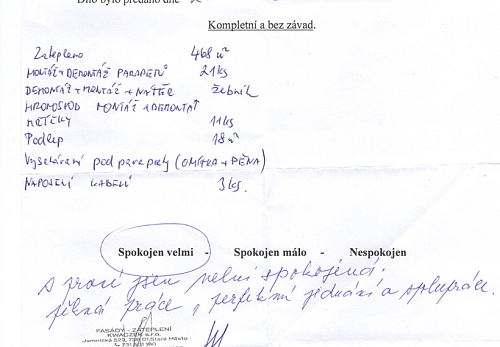 Dílo bylo předáno dne
Kompletní a bez závad.
Zatepleno 468 m²
MONTÁŽ + DEMONTÁŽ PARAPETŮ 21 ks
DEMONTÁŽ + MONTÁŽ + NÁTĚR žebřík
HROMOSVOD MONTÁŽ + DEMONTÁŽ
MŘÍŽKY 11 ks
Podlep 18 m²
Vysekávání pod parapety (OMÍTKA + PĚNA)
NAPOJENÍ KABELŮ 3 ks.
Spokojen velmi - Spokojen málo - Nespokojen
s prací jsem velmi spokojená.
pěkná práce, perfektní jednání a spolupráce.
FASÁDY - ZATEPLENÍ
KWACZEK s.r.o.
Jamnická 523, Staré Města